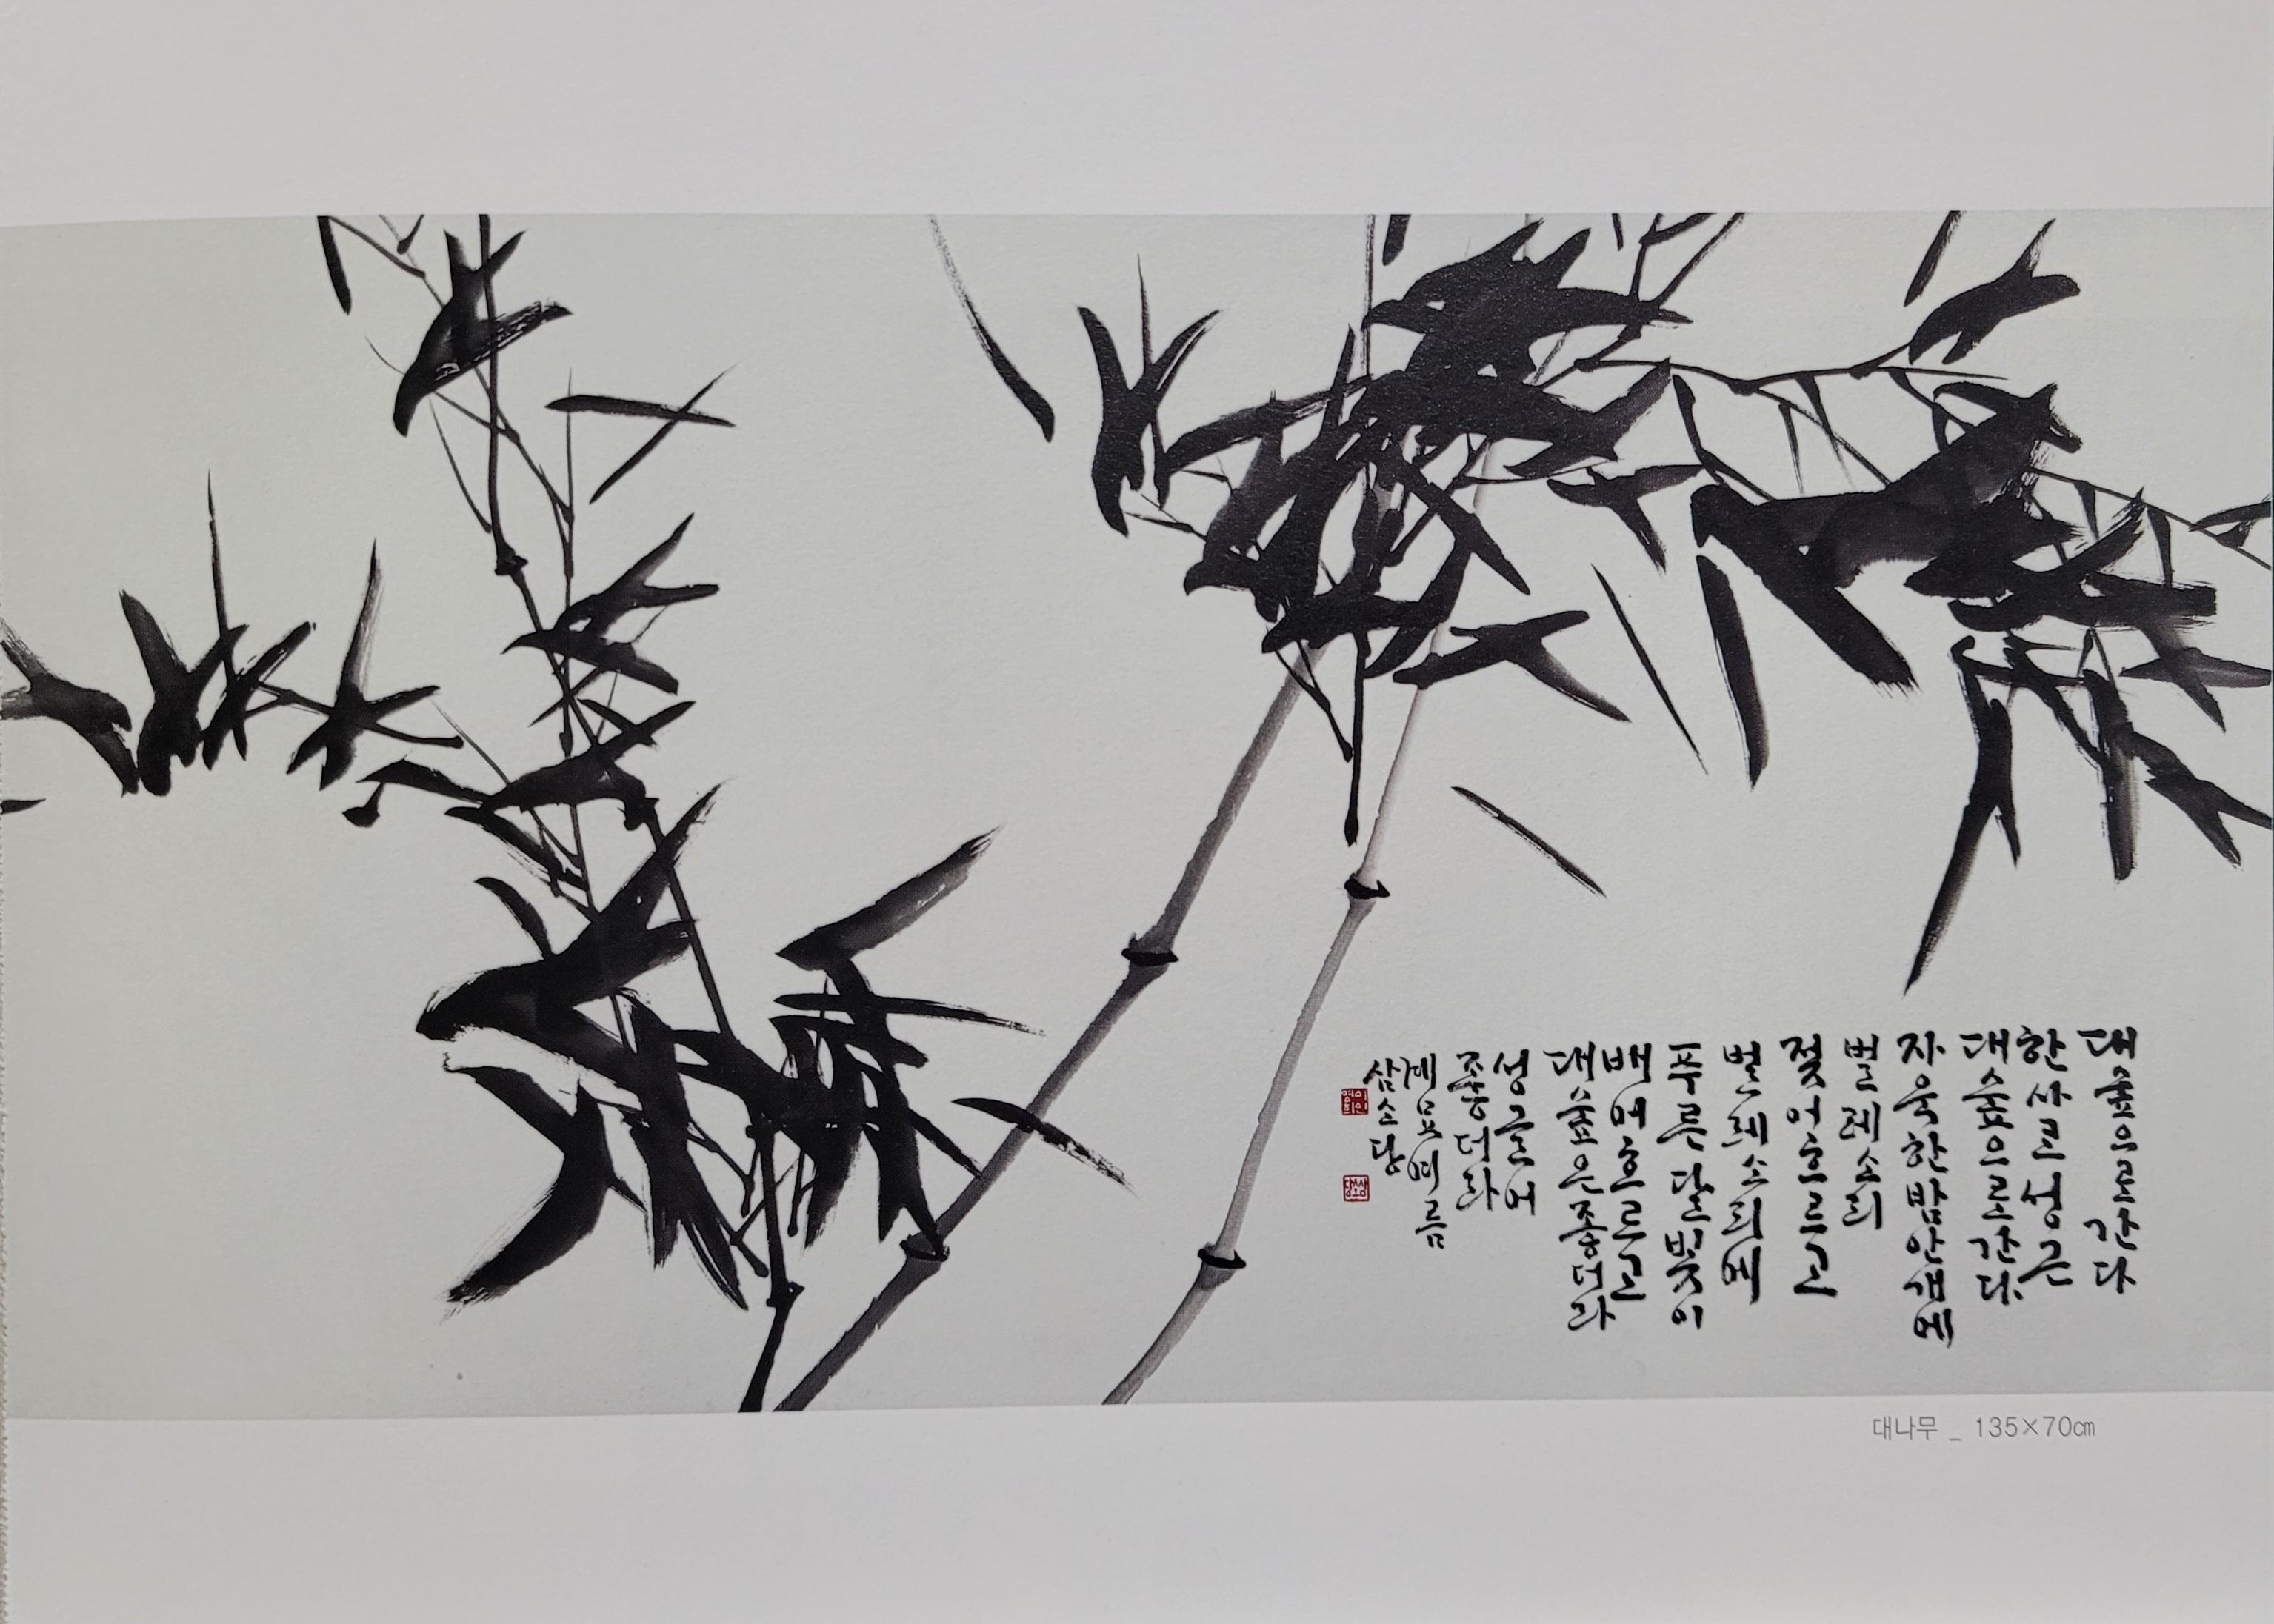 대숲으로 간다
한사코 성근
대숲으로 간다
자욱한 밤안개에
벌레소리
젖어 흐르고
벌레소리에
푸른 달빛이
배어 흐르고
대숲은 좋더라
성글어
좋더라
계묘여름
삼소당
삼소당
대나무 _ 135×70㎝